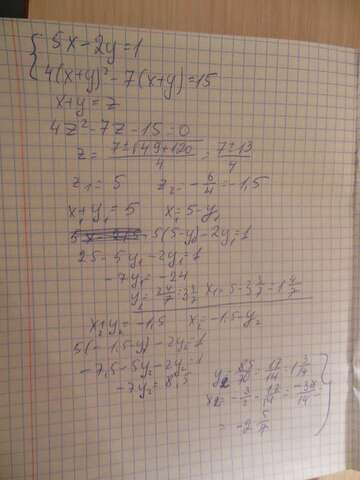 { 5x-2y=1
4(x+y)²-7(x+y)=15
x+y=z
4z²-7z-15=0
z= 7±√49+120/4 = 7±13/4
z₁=5 z₂= -6/4=-1,5
x₁+y₁=5 x₁=5-y₁
5(5-y)-2y₁=1
25-5y₁-2y₁=1
-7y₁=-24
y₁=24/7=3 3/7 x₁=5-3 3/7=1 4/7
x₂+y₂=-1,5 x₂=-1,5-y₂
5(-1,5-y)-2y₂=1
-7,5-5y₂-2y₂=1
-7y₂=8,5
y₂= 85/70= 17/14=1 3/14
x₂= -3/2 - 17/14= -38/14=
= -2 5/7